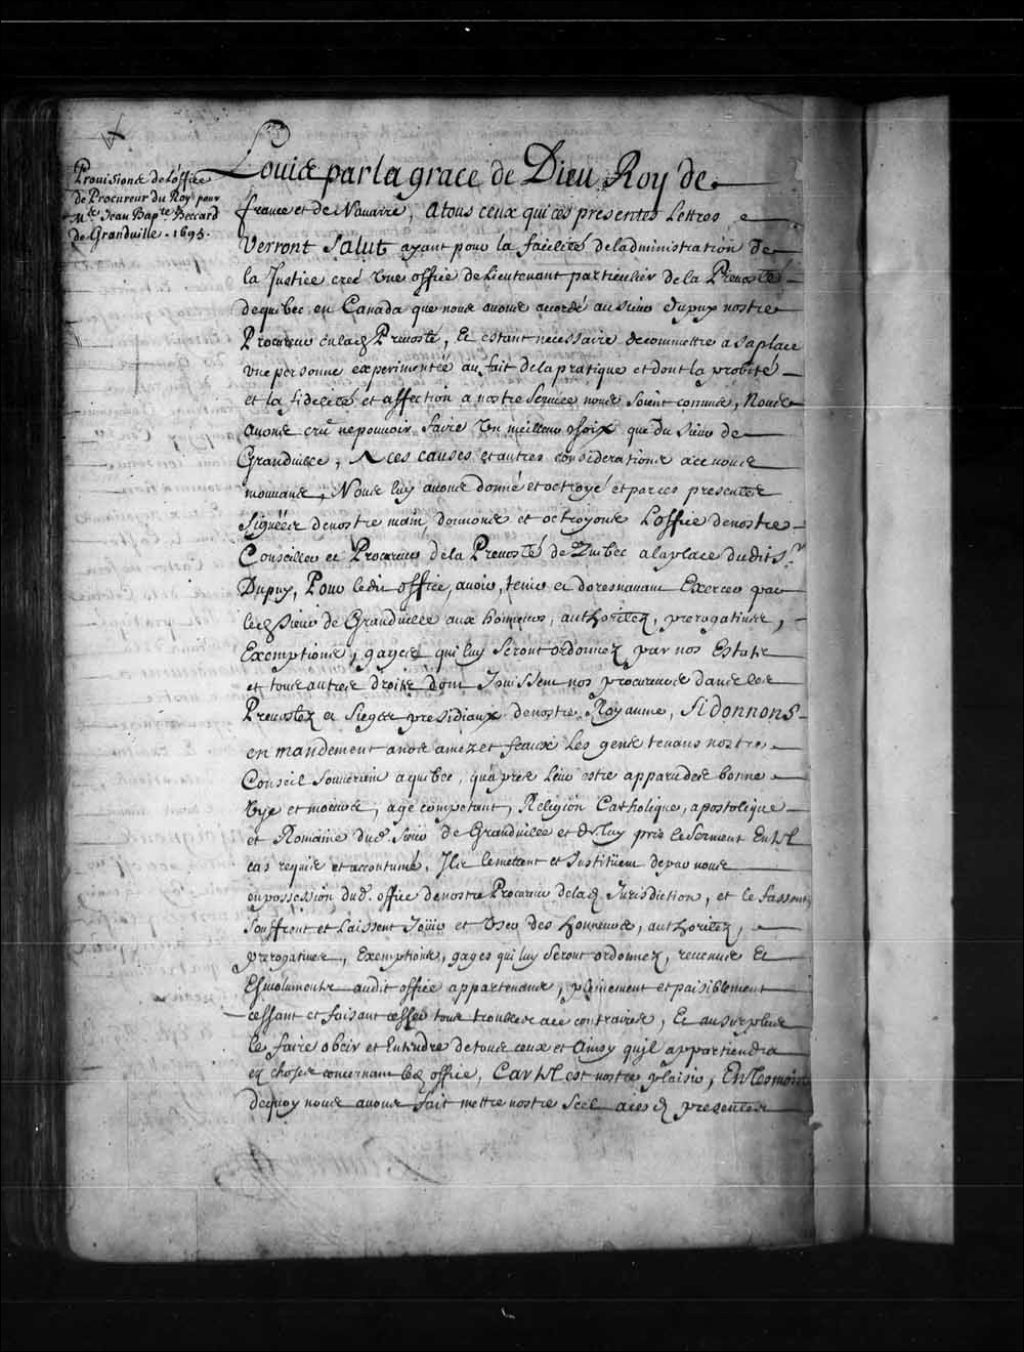 Prouisions de Loffice
de Procureur du Roy pour
Me. Jean Bapte. Beccard
de Granduille. 1695.
Louis par la grace de Dieu Roy de
france et de Nauarre, A tous ceux qui ces presentes Lettres
Verront Salut ayant pour la facilité de ladministration de
la Justice creé Vne office de Lieutenant particulier de la Preuosté
de quebec en Canada que nous auons accordé au sieur dupuy nostre
Procureur en lad Preuosté, Et estant necessaire de commettre a sa place
vne personne experimentée au fait de la pratique et dont la probité
et la fidelité et affection a nostre seruice nous soient connues, Nous
auons cru ne pouuoir faire Vn meilleur choix que du sieur de
Granduille, A ces causes et autres considerations a ce nous
mouuans, Nous luy auons donné et octroyé et par ces presentes
signées de nostre main, donnons et octroyons Loffice de nostre
Conseiller et Procureur de la Preuosté de Quebec a la place dudit Sr.
Dupuy, Pour ledit office, auoir, tenir et doresnauant Exercer par
led Sieur de Granduille aux honneurs, authoritez, prerogatiues,
Exemptions, gages qui luy seront ordonnez par nos Estats
et tous autres droits dont Jouissent nos procureurs dans les
Preuostez et sieges presidiaux de nostre Royaume, Si donnons
en mandement a nos amez et feaux Les gens tenans nostre
Conseil Souuerain a quebec, qu'apres Leur estre apparu des bonne
Vye et moeurs, age competant, Religion Catholique, apostolique
et Romaine dud. Sieur de Granduille et de luy pris le serment En tel
cas requis et accoutumé, Ils le mettent et Instituent de par nous
en possession dud. office de nostre Procureur de lad Jurisdiction, et le fassent
souffrent et Laissent Joüir et Vser des honneurs, authoritez,
prerogatiues, Exemptions, gages qui luy seront ordonnez, reuenus Et
Esmolumens audit office appartenans, plainement et paisiblement
cessant et faisant cesser tous troubles a ce contraires, Et au surplus
le faire obeir et Entendre de tous ceux et Ainsy qu'il appartiendra
es choses concernant led office, Car tel est nostre plaisir, En tesmoin
de quoy nous auons fait mettre nostre scel a ces d presentes